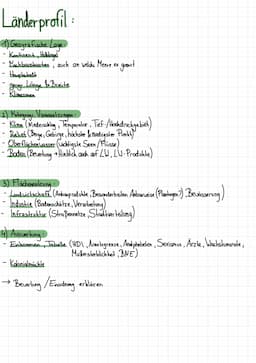 Länderprofil :
1) Geografische Lage
- Kontinent, Halbkugel
- Nachbarstaaten, auch an welche Meere es grenzt
- Hauptstadt
- geogr. Länge & Breite
- Klimazonen
2) Voraussetzungen :
- Klima (Niederschlag, Temperatur, Tief-/Hochdruckgebiet)
- Relief (Berge, Gebirge, höchster & niedrigster Punkt)
- Oberflächenwasser (wichtigste Seen/Flüsse)
- Boden (Bewertung → Hinblick auch auf LW, LW-Produkte)
3) Flächennutzung :
- Landwirtschaft (Anbauprodukte, Besonderheiten, Anbauweise (Plantagen?) Bewässerung)
- Industrie (Bodenschätze, Verarbeitung)
- Infrastruktur (Straßennetze, Stadtverteilung)
4) Auswertung :
- Tabelle (HDI, Armutsgrenze, Analphabeten, Ärzte, Wachstumsrate,
Müttersterblichkeit, BNE)
- Kolonialmächte
→ Bewertung / Einordnung erklären